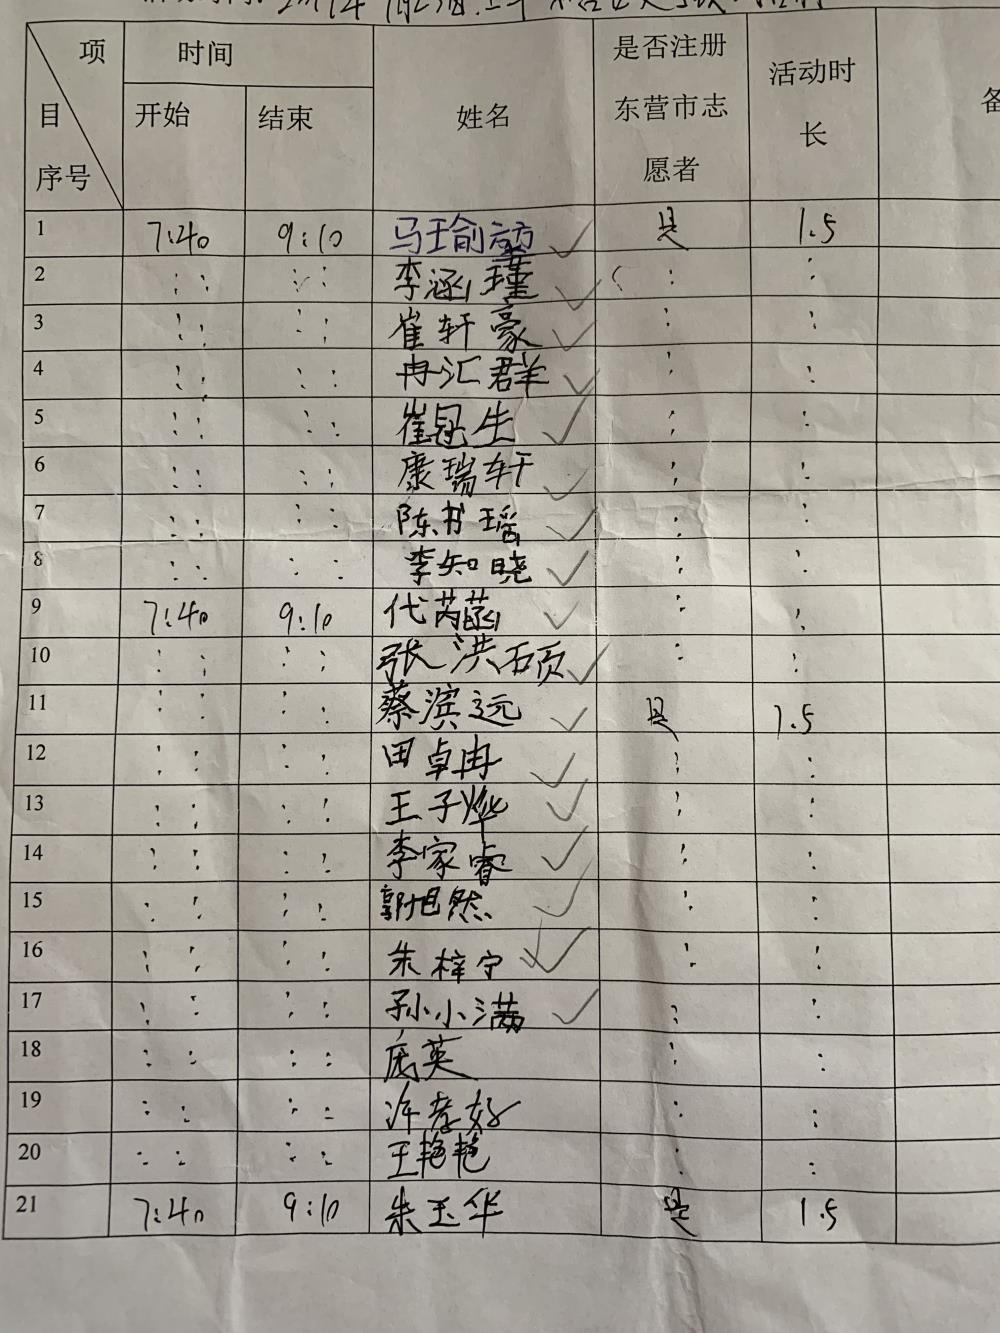 项
时间
是否注册
活动时
目
开始
结束
姓名
东营市志
长
备
序号
愿者
1 7:40 9:10 是 1.5
2 李涵瑾
3 崔轩豪
4 冉汇群
5 崔冠生
6 康瑞轩
7 陈书瑶
8 李知晓
9 7:40 9:10 代芮菡
10 张洪硕
11 蔡滨远 是 1.5
12 田卓冉
13 王子烨
14 李家睿
15 郭旭然
16 朱梓宁
17 孙小满
18 庞英
19 许孝好
20 王艳艳
21 7:40 9:10 朱玉华 是 1.5